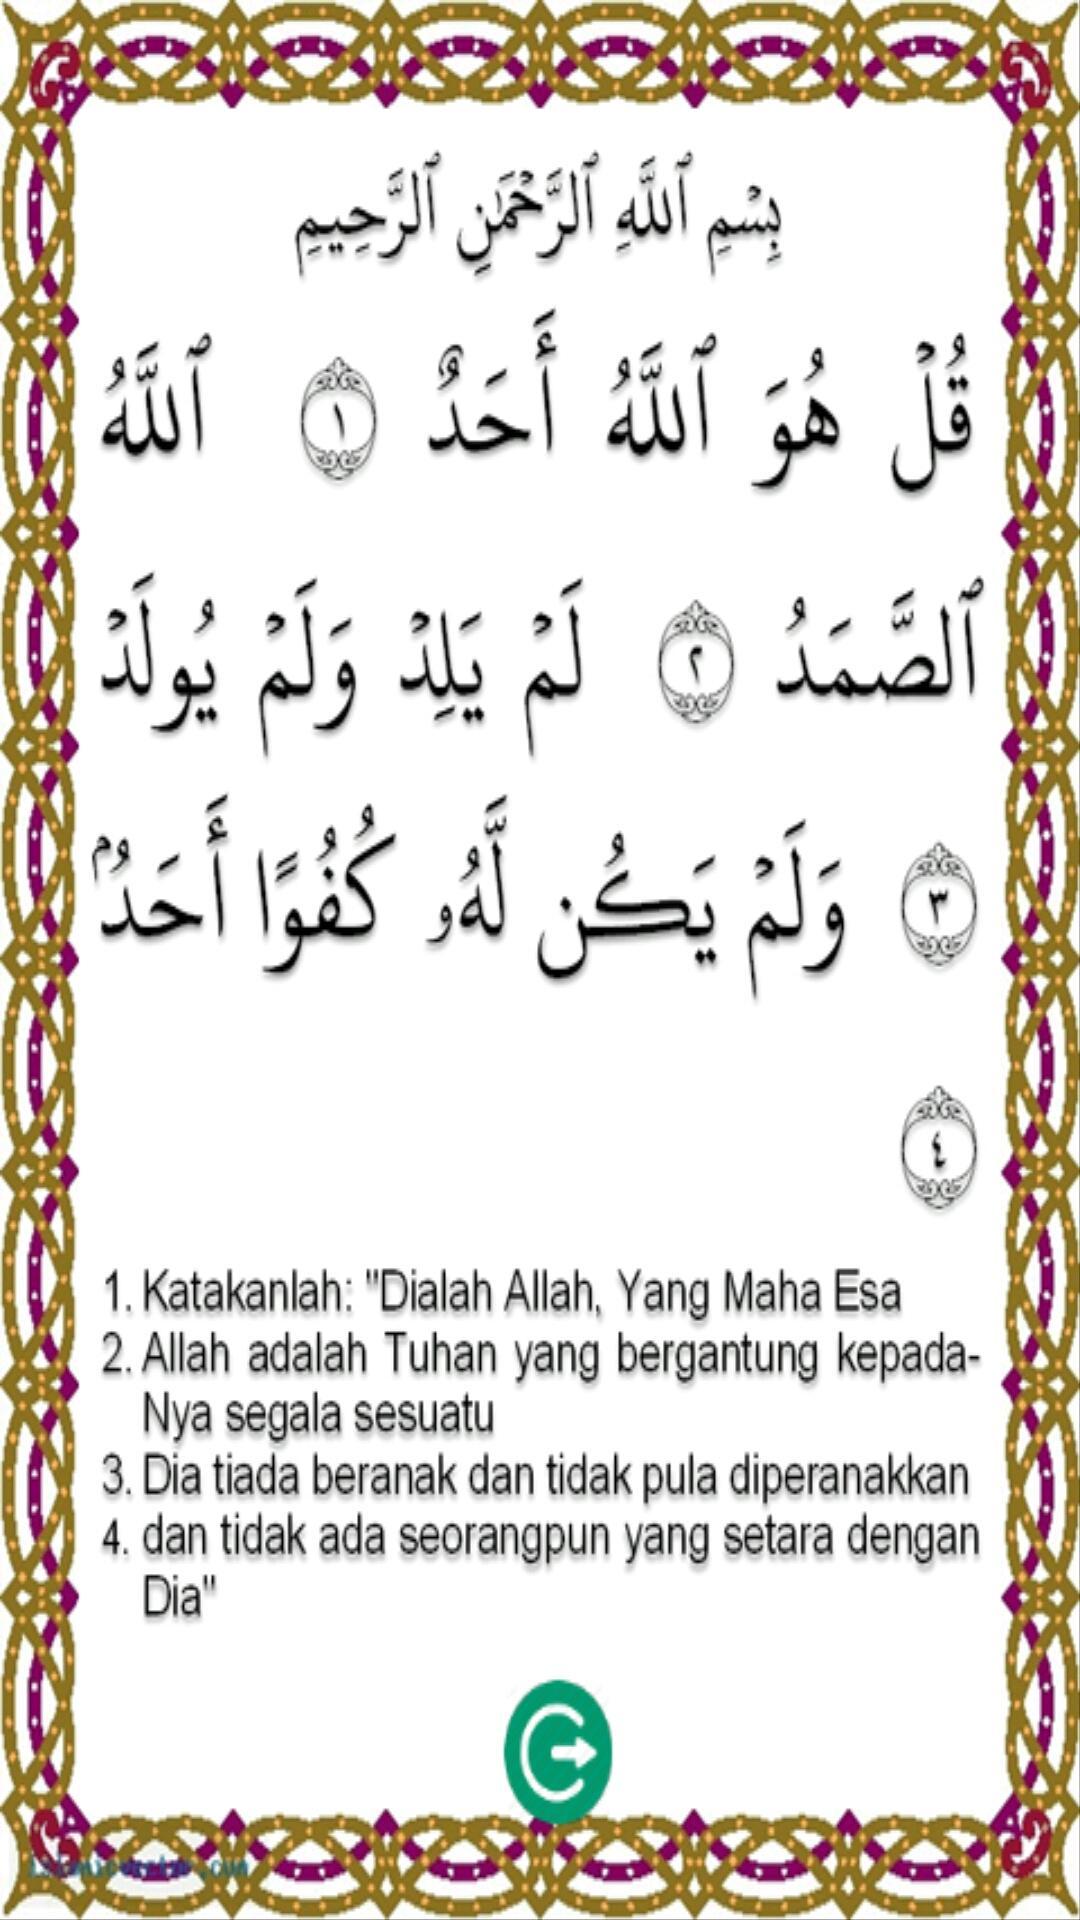 بِسۡمِ ٱللَّهِ ٱلرَّحۡمَٰنِ ٱلرَّحِيمِ
قُلۡ هُوَ ٱللَّهُ أَحَدٌ ١ ٱللَّهُ
ٱلصَّمَدُ ٢ لَمۡ يَلِدۡ وَلَمۡ يُولَدۡ
٣ وَلَمۡ يَكُن لَّهُۥ كُفُوًا أَحَدُۢ
٤
1. Katakanlah: "Dialah Allah, Yang Maha Esa
2. Allah adalah Tuhan yang bergantung kepada-
Nya segala sesuatu
3. Dia tiada beranak dan tidak pula diperanakkan
4. dan tidak ada seorangpun yang setara dengan
Dia"